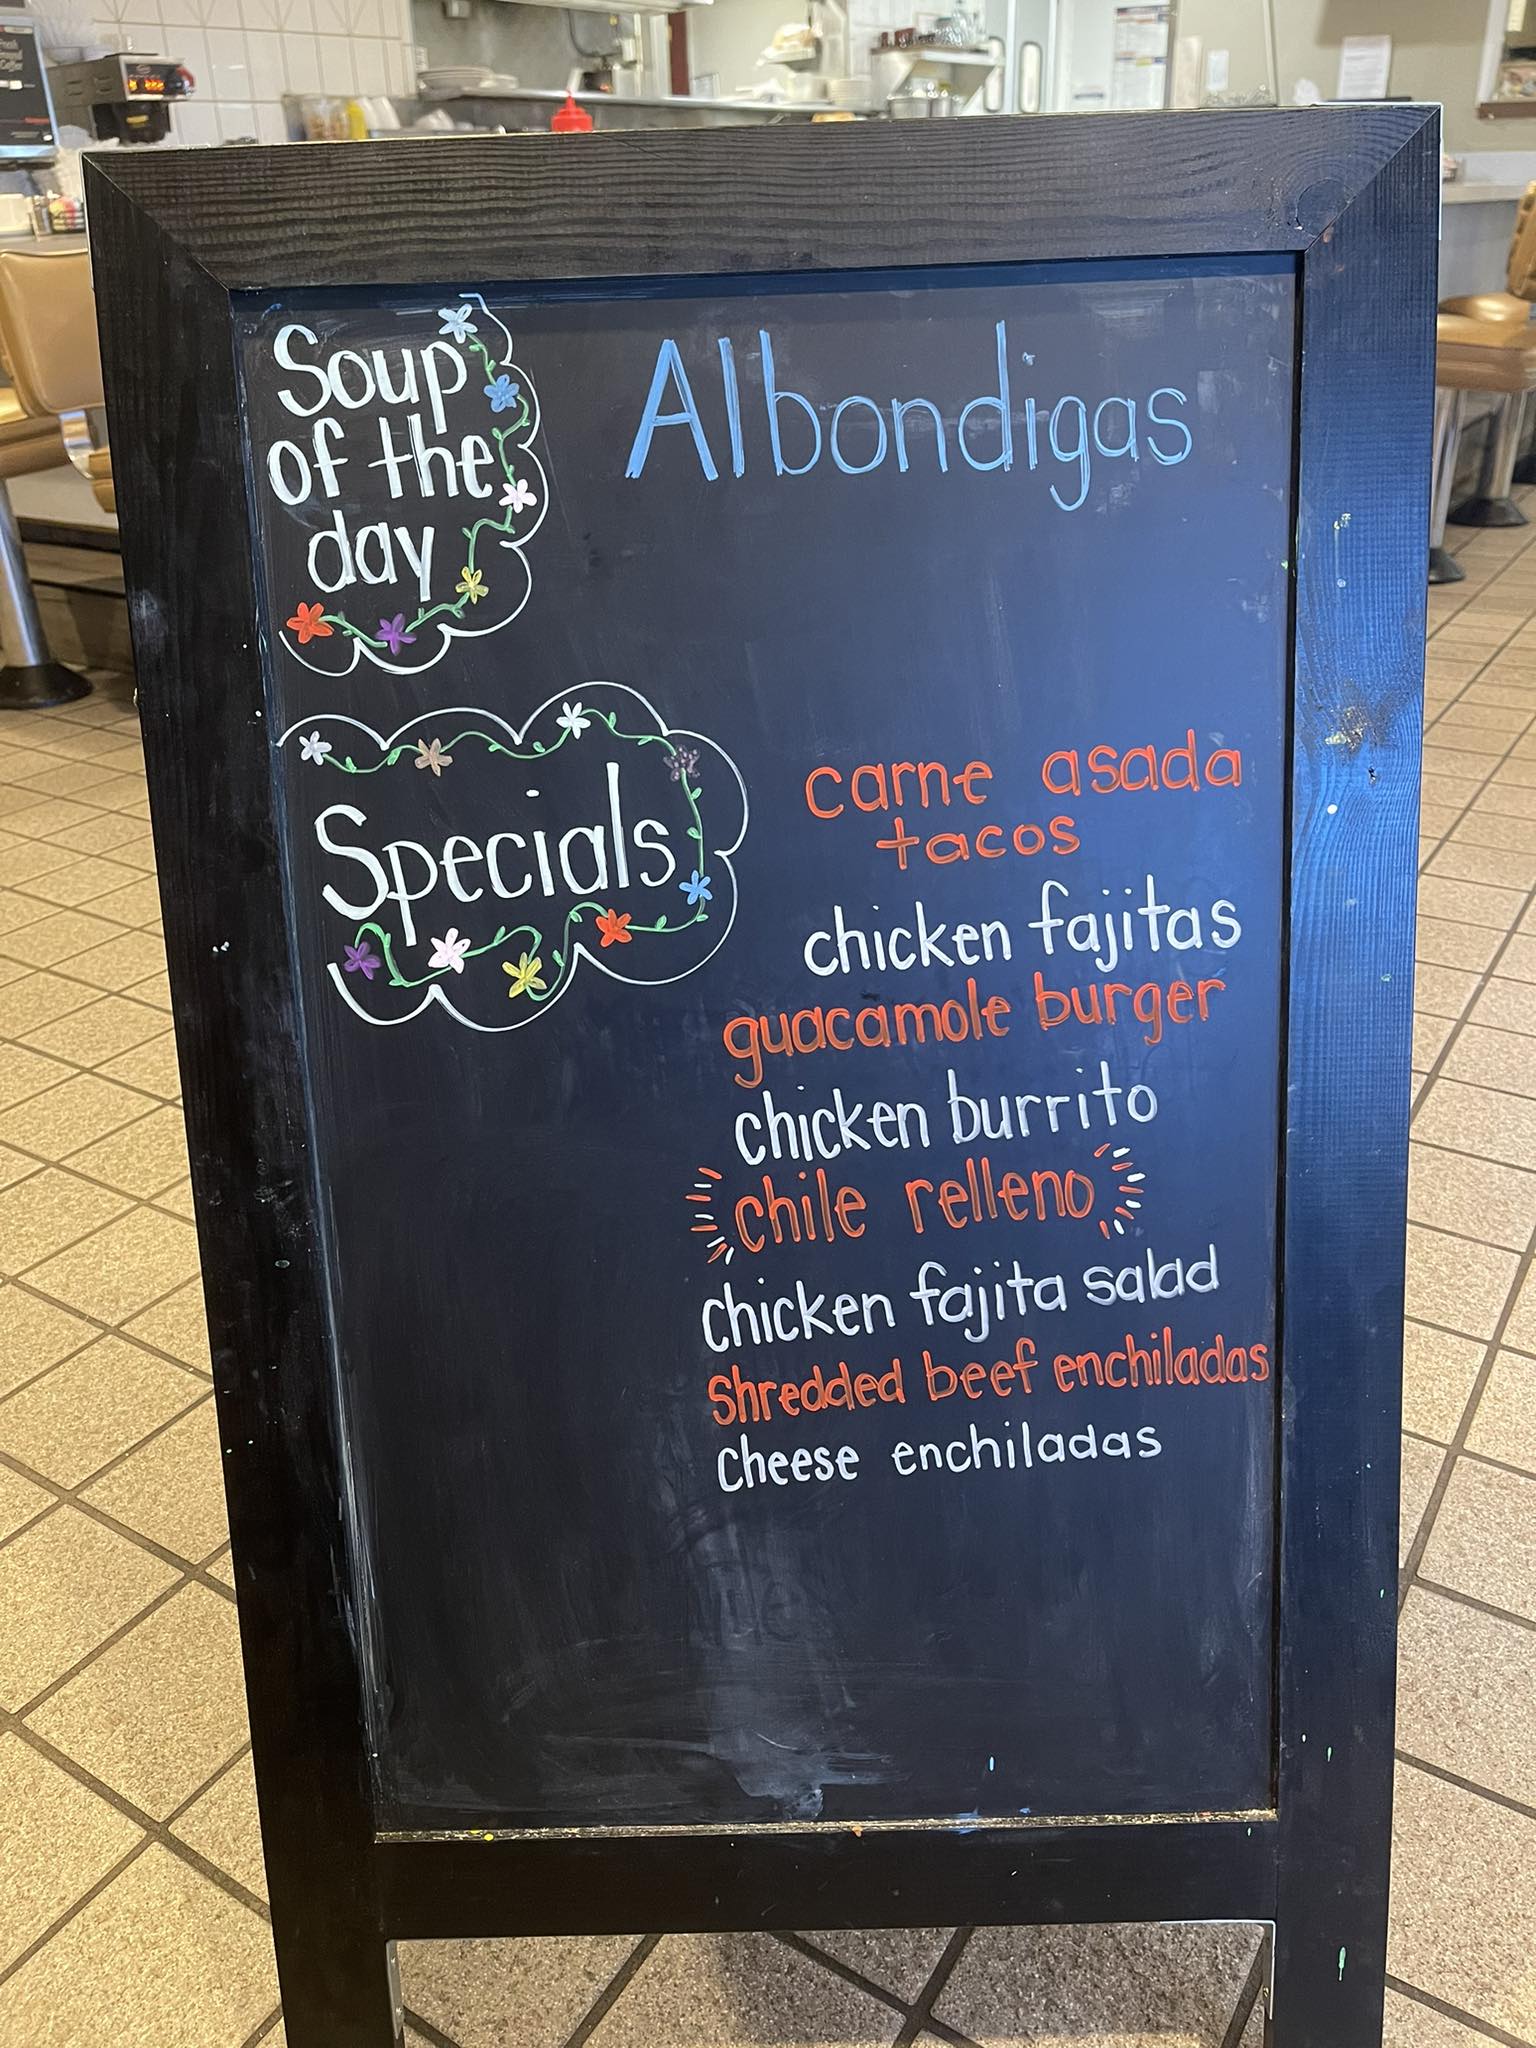 Soup
of the
day
Albondigas
Specials
carne asada
tacos
chicken fajitas
guacamole burger
chicken burrito
chile relleno
chicken fajita salad
shredded beef enchiladas
cheese enchiladas